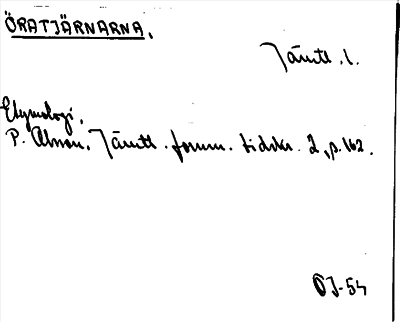 ÖRATJÄRNARNA.
Jämtl. l.
Etymologi.
P. Olsson, Jämtl. fornm. tidskr. 2, p. 162.
OJ-54